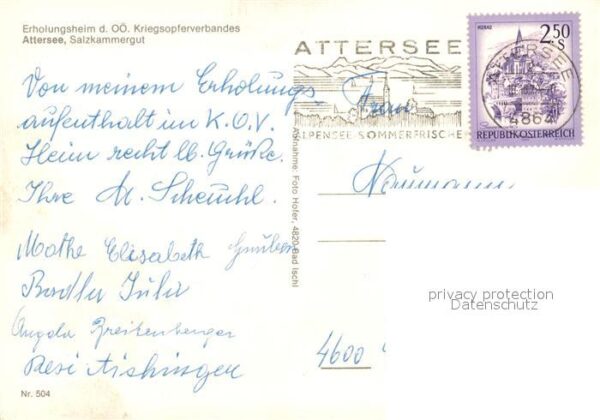 Erholungsheim d. OÖ. Kriegsopferverbandes
Attersee, Salzkammergut
Von meinem Erholungs
aufenthalt im K.O.V.
Heim recht lb. Grüße.
Ihre M. Scheuhl.
Mathe Elisabeth
Julia
Angela
Resi Aishinger
Nr. 504
Aufnahme: Foto Hofer, 4820 Bad Ischl
ATTERSEE
ALPENSEE-SOMMERFRISCHE
MURAU
2.50
S
ATTERSEE
4864
REPUBLIK ÖSTERREICH
Frau
Naumann
4600
privacy protection
Datenschutz